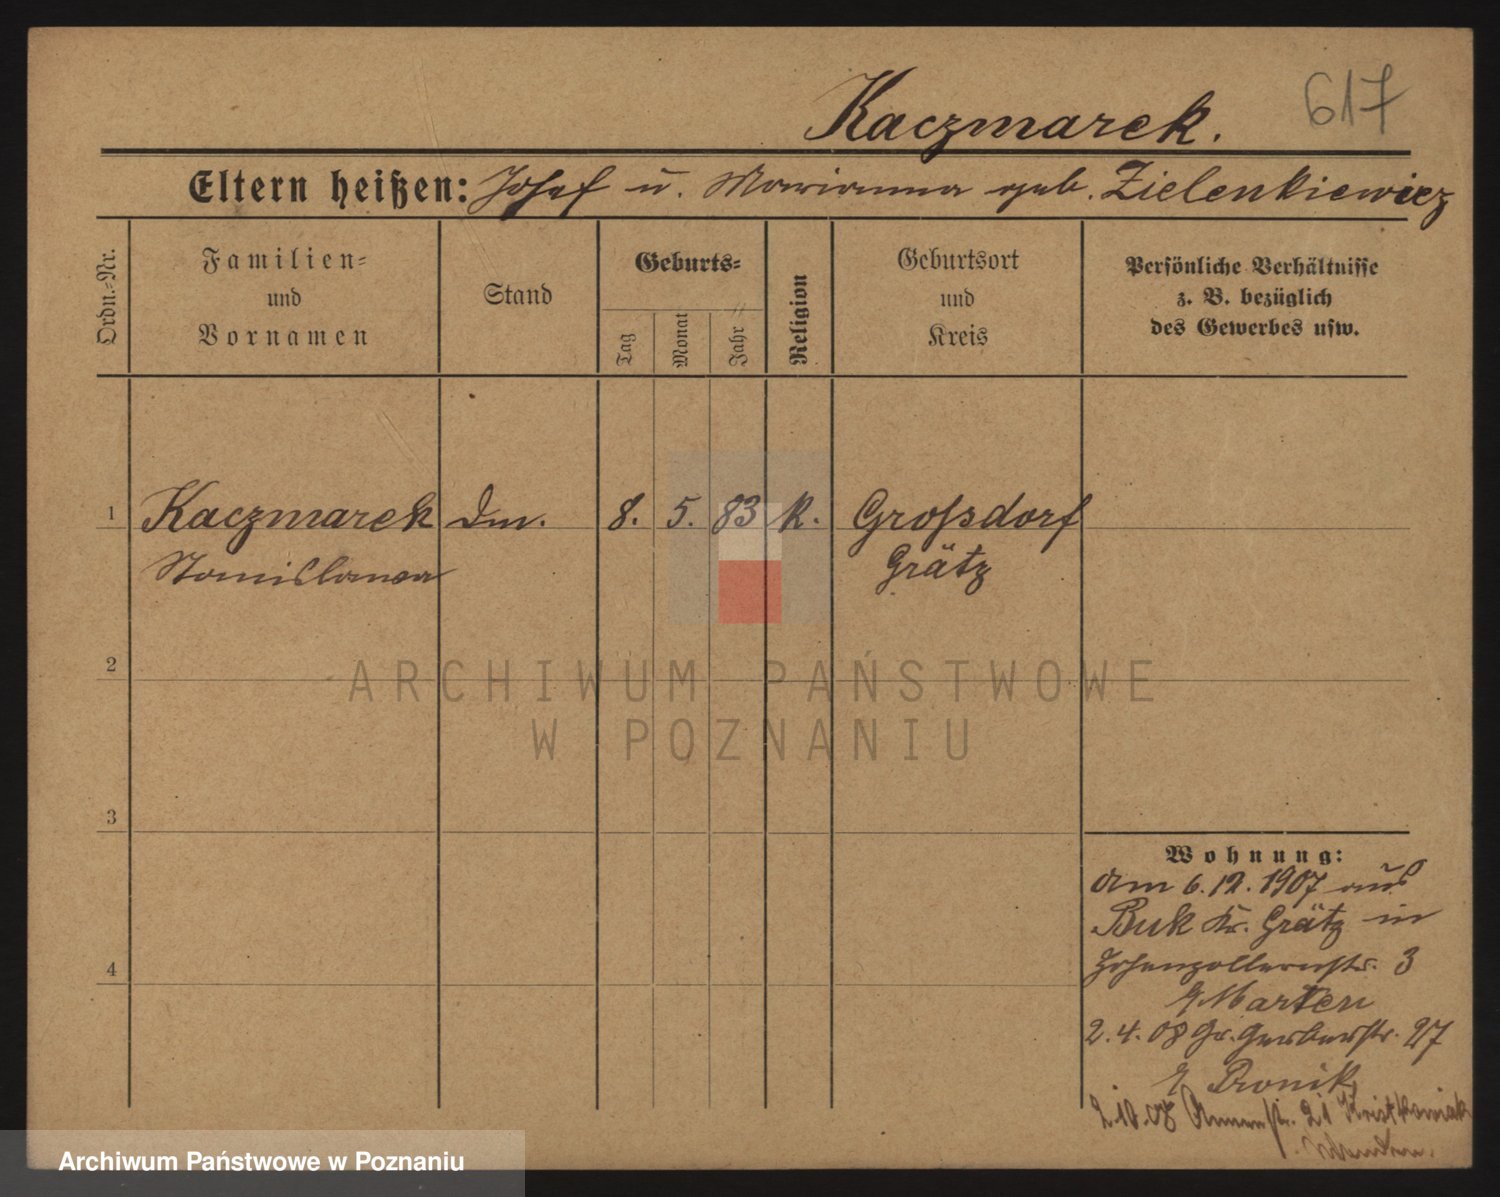 Kaczmarek.
617
Eltern heißen: Josef u. Marianna geb. Zielenkiewicz
Ordn.-Nr.
Familien-
und
Vornamen
Stand
Geburts-
Tag
Monat
Jahr
Religion
Geburtsort
und
Kreis
Persönliche Verhältnisse
z. B. bezüglich
des Gewerbes usw.
1 Kaczmarek Dm. 8. 5. 83 K. Großdorf
Stanislawa Grätz
2
ARCHIWUM PAŃSTWOWE
W POZNANIU
3
Wohnung:
am 6.12.1907 aus
Buk Kr. Grätz in
4
Hohenzollernstr. 3
Marten
2.4.08 Gr. Gerberstr. 27
Pronik
2.10.08 21
Archiwum Państwowe w Poznaniu